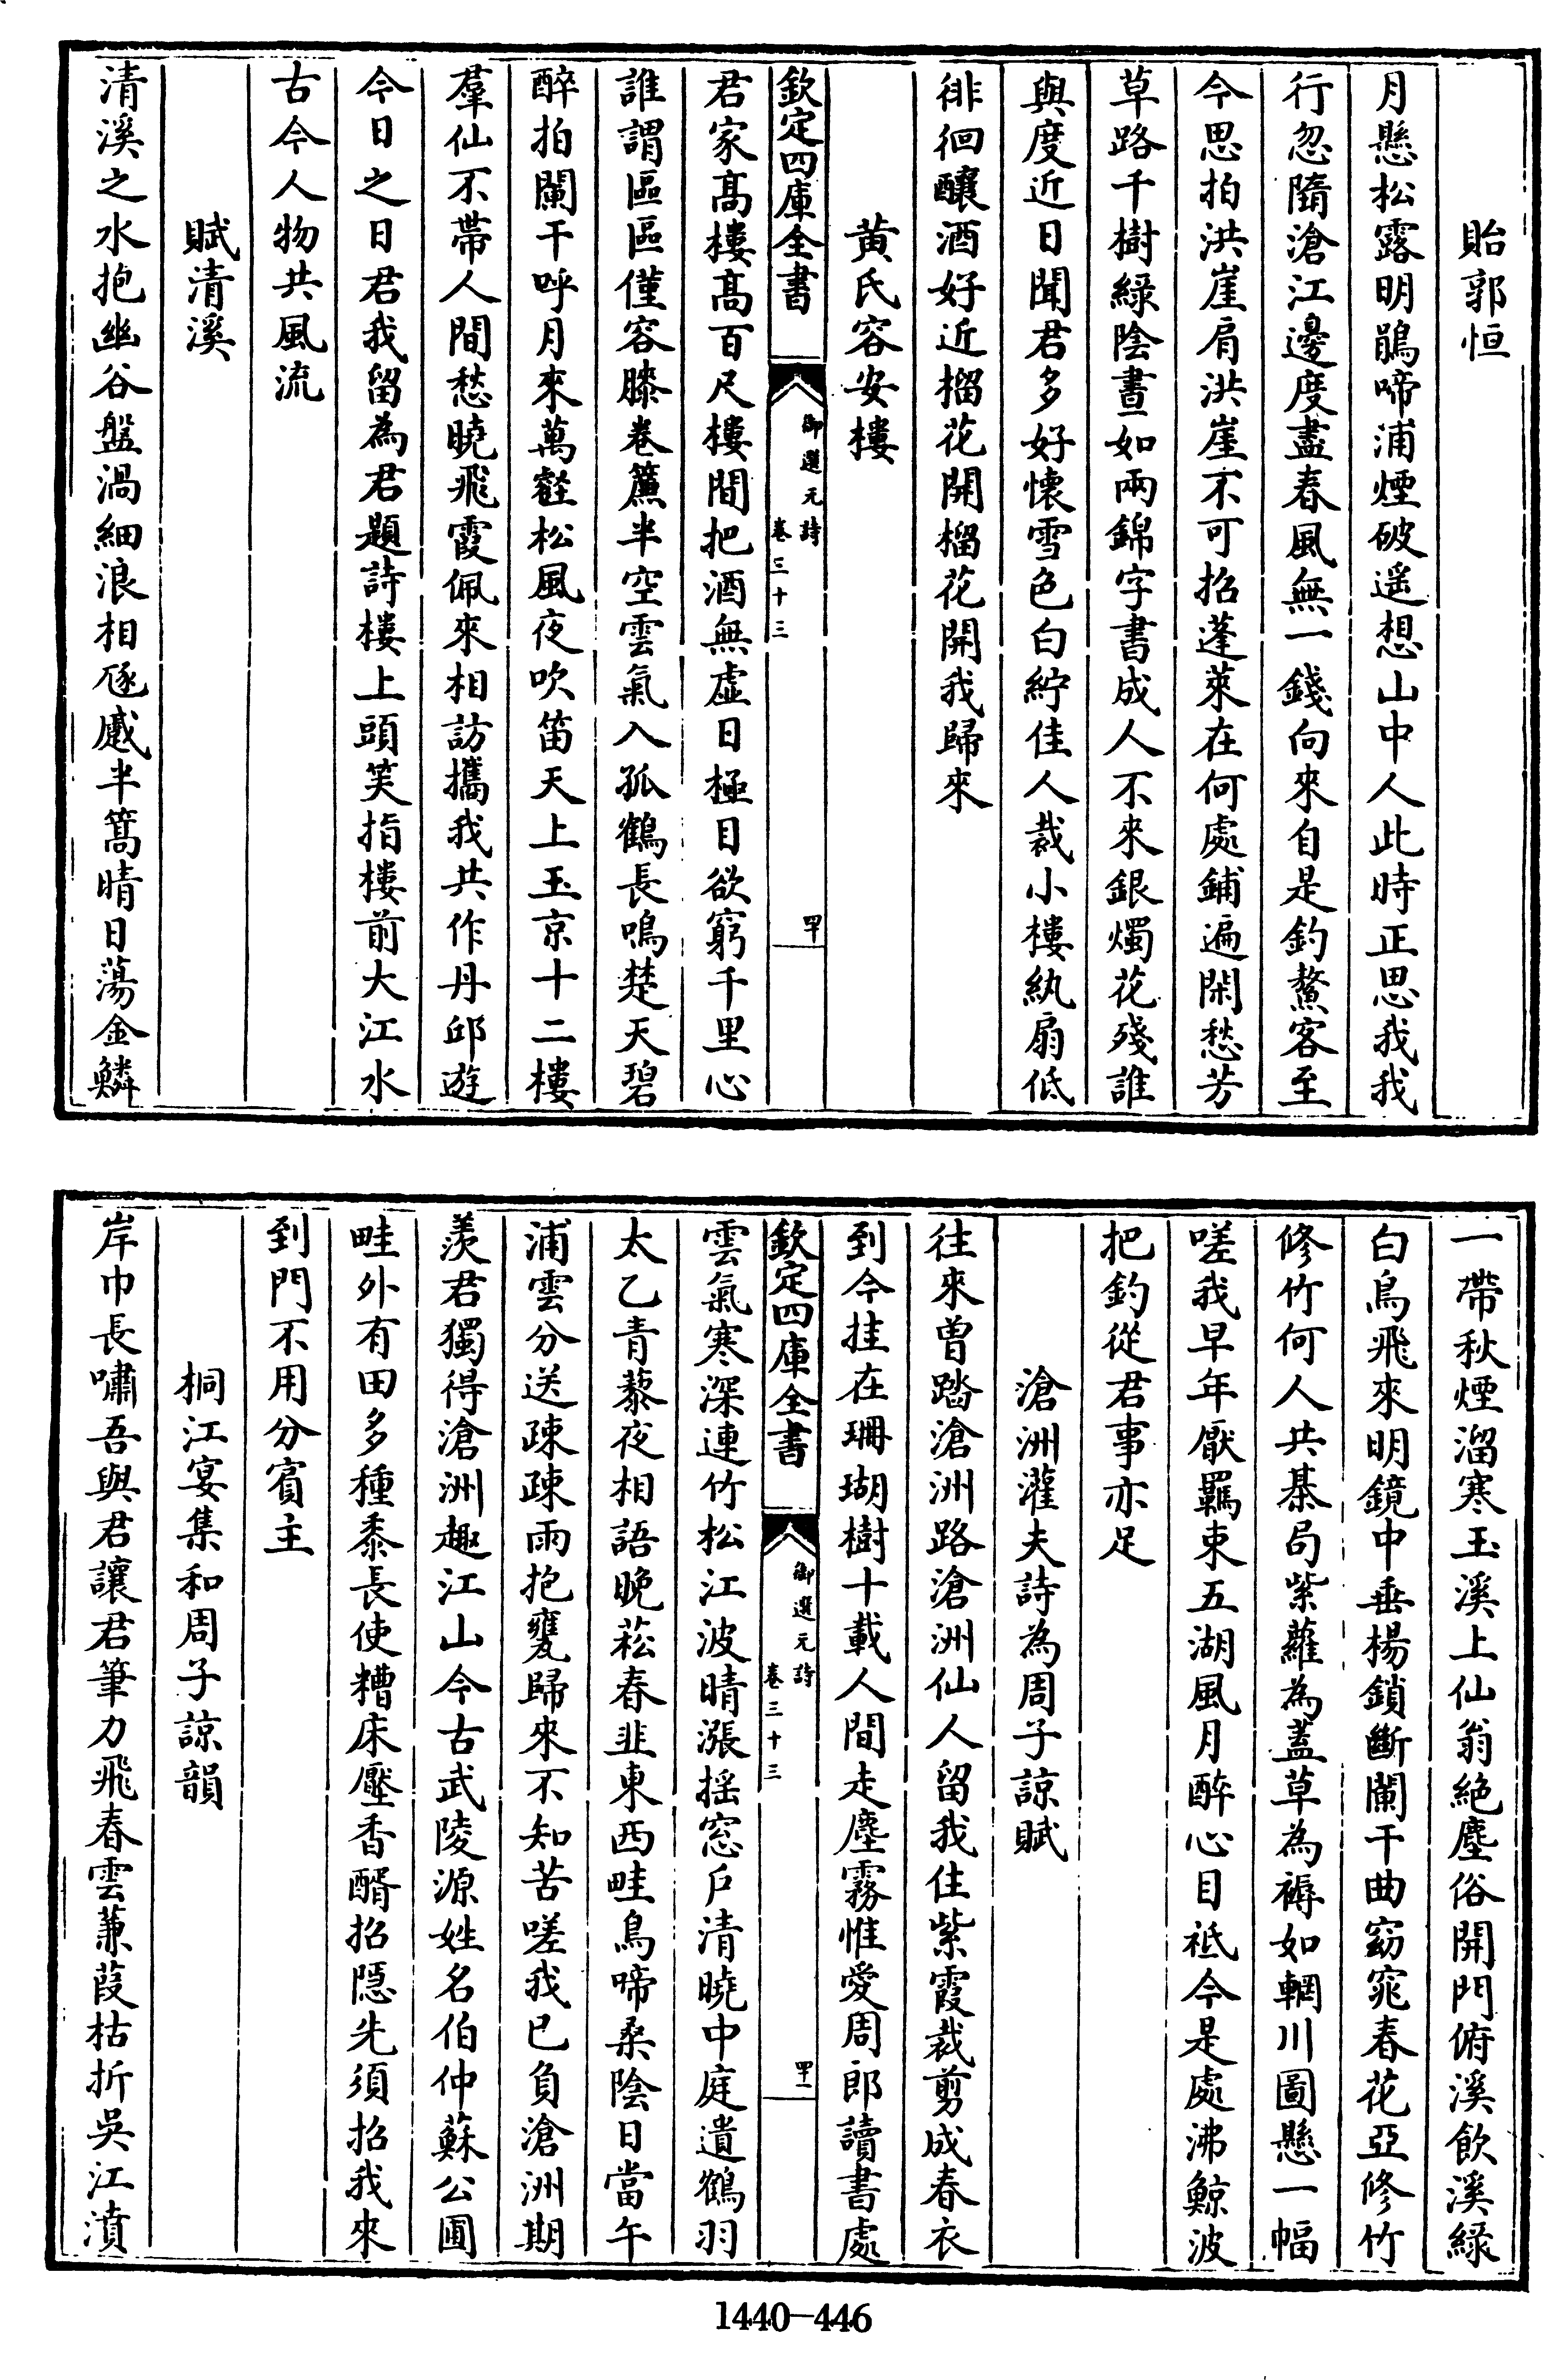 貽郭恒
月懸松露明鵑啼浦煙破遥想山中人此時正思我我
行忽隨滄江邊度盡春風無一錢向來自是釣鰲客至
今思拍洪崖肩洪崖不可招蓬萊在何處鋪遍閑愁芳
草路千樹緑陰晝如雨錦字書成人不來銀燭花殘誰
與度近日聞君多好懐雪色白紵佳人裁小樓紈扇低
徘徊釀酒好近榴花開榴花開我歸來
黄氏容安樓
欽定四庫全書
御選元詩
卷三十三
四十
君家髙樓髙百尺樓間把酒無虛日極目欲窮千里心
誰謂區區僅容膝卷簾半空雲氣入孤鶴長鳴楚天碧
醉拍闌干呼月來萬壑松風夜吹笛天上玉京十二樓
羣仙不帶人間愁曉飛霞佩來相訪攜我共作丹邱遊
今日之日君我留為君題詩樓上頭笑指樓前大江水
古今人物共風流
賦清溪
清溪之水抱幽谷盤渦細浪相豗蹙半篙晴日蕩金鱗
一帶秋煙溜寒玉溪上仙翁絶塵俗開門俯溪飲溪緑
白鳥飛來明鏡中垂楊鎖斷闌干曲窈窕春花亞修竹
修竹何人共棊局紫蘿為蓋草為褥如輞川圖懸一幅
嗟我早年厭羈束五湖風月醉心目祗今是處沸鯨波
把釣從君事亦足
滄洲灌夫詩為周子諒賦
往來曽踏滄洲路滄洲仙人留我住紫霞裁剪成春衣
到今挂在珊瑚樹十載人間走塵霧惟愛周郎讀書處
欽定四庫全書
御選元詩
卷三十三
四十一
雲氣寒深連竹松江波晴漲揺窓户清曉中庭遺鶴羽
太乙青藜夜相語晚菘春韭東西畦鳥啼桑陰日當午
浦雲分送疎疎雨抱甕歸來不知苦嗟我已負滄洲期
羨君獨得滄洲趣江山今古武陵源姓名伯仲蘇公圃
畦外有田多種黍長使糟床壓香醑招隱先須招我來
到門不用分賓主
桐江宴集和周子諒韻
岸巾長嘯吾與君讓君筆力飛春雲蒹葭枯折吳江濆
1440—446